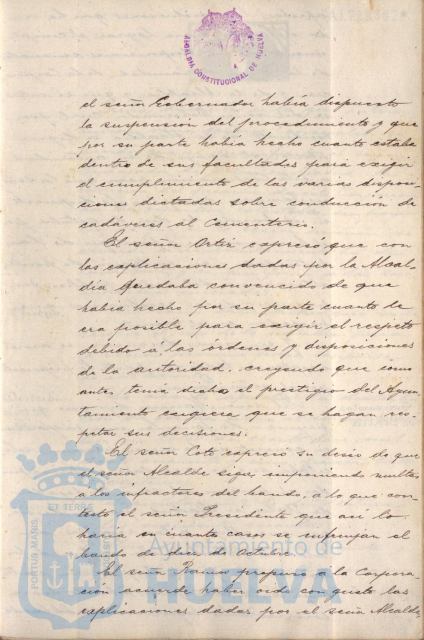 ALCALDÍA CONSTITUCIONAL DE HUELVA
el señor Gobernador había dispuesto
la suspensión del procedimiento y que
por su parte había hecho cuanto estaba
dentro de sus facultades para exigir
el cumplimiento de las varias disposi-
ciones dictadas sobre conducción de
cadáveres al Cementerio.
El señor Ortiz expresó que con
las explicaciones dadas por la Alcal-
día quedaba convencido de que
había hecho por su parte cuanto le
era posible para exigir el respeto
debido á las órdenes y disposiciones
de la autoridad, creyendo que como
antes tenía dicho el prestigio del Ayun-
tamiento exigiera que se hagan res-
petar sus decisiones.
El señor Coto expresó su deseo de que
el señor Alcalde siga imponiendo multas
a los infractores del bando, á lo que con-
testó el señor Presidente que así lo
haría en cuantos casos se infrinjan el
bando de diez de Octubre.
El señor propuso á la Corpora-
ción acuerde haber oido con gusto las
explicaciones dadas por el señor Alcalde
PORTUS MARIS ET TERRE
Ayuntamiento de
HUELVA